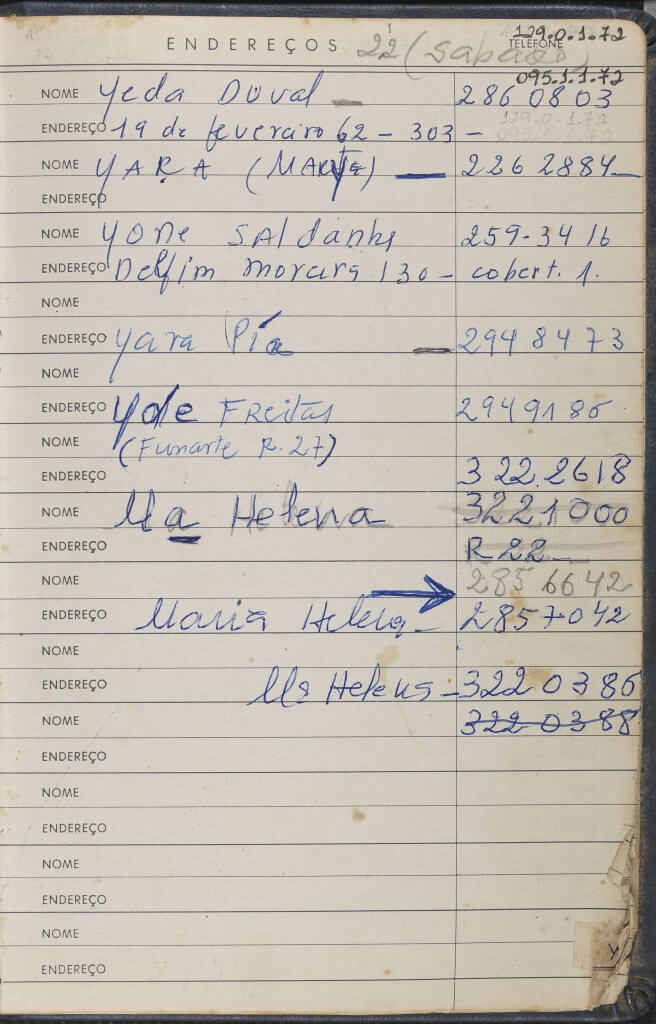 129.0.1.72
ENDEREÇOS 22 (Sabado) TELEFONE
095.1.1.72
NOME Yeda Duval — 286 08 03
129.0.1.72
ENDEREÇO 19 de fevereiro 62 - 303 -
095.1.1.72
NOME YARA ( ) — 226 2884
ENDEREÇO
NOME YONE SAldanha 259-3416
ENDEREÇO Delfim Moreira 130 - cobert. 1.
NOME
ENDEREÇO Yara Pía — 294 8473
NOME
ENDEREÇO Yde FReitas 2949186
NOME (Funarte R. 27)
ENDEREÇO 322.2618
NOME Ma Helena 3221000
ENDEREÇO R 22
NOME 285 6642
ENDEREÇO Maria Helena - 2857042
NOME
ENDEREÇO Ma Helena - 322 0386
NOME 322 0388
ENDEREÇO
NOME
ENDEREÇO
NOME
ENDEREÇO
NOME
ENDEREÇO
Y